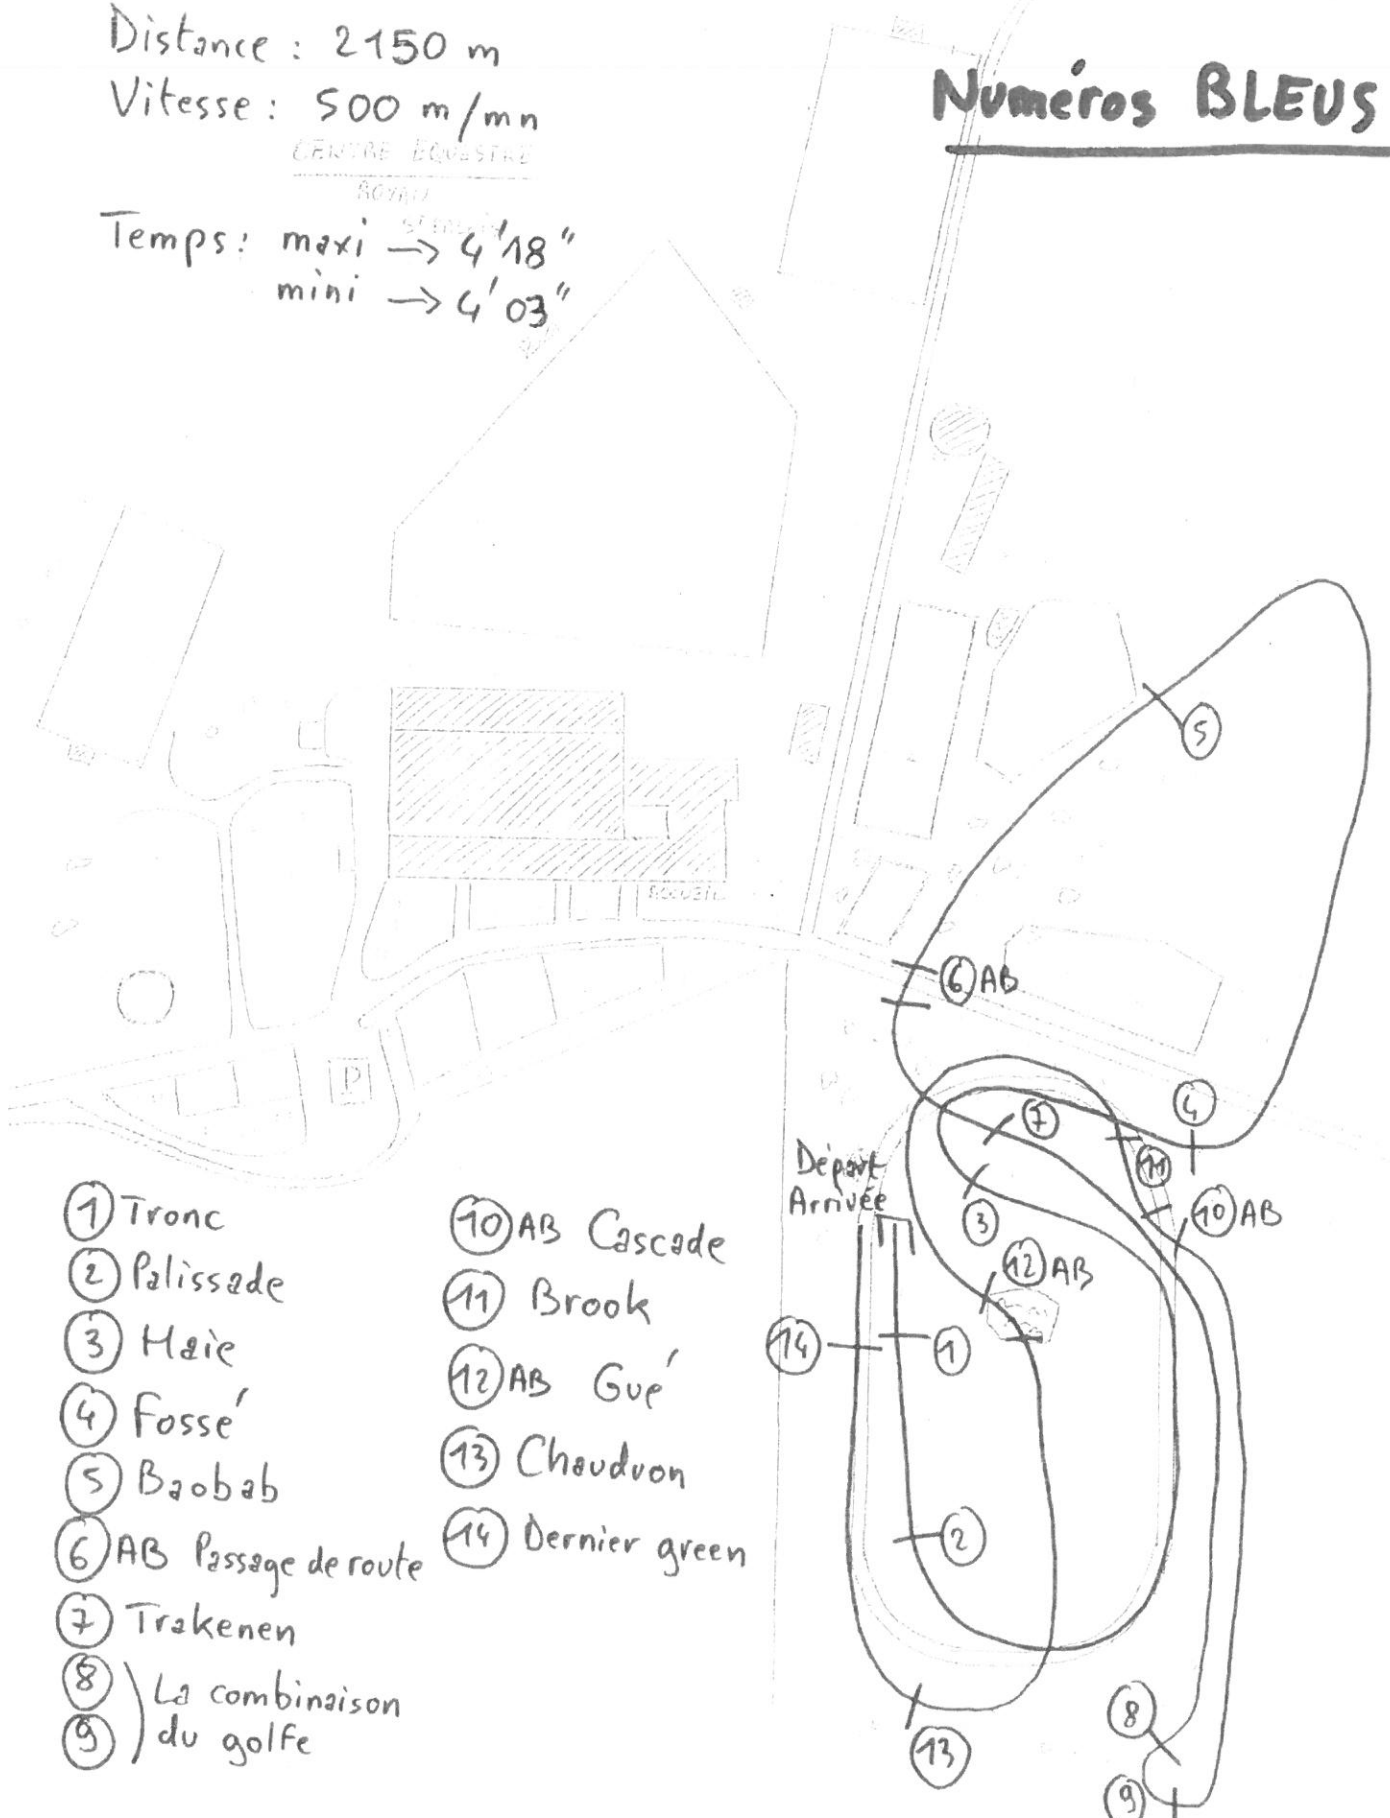 Distance : 2150 m
Vitesse : 500 m/mn
CENTRE EQUESTRE
ROYAN
Temps : maxi → 4'18"
mini → 4'03"
Numéros BLEUS
ACCUEIL
P
5
6 AB
4
7
11
10 AB
3
12 AB
Départ
Arrivée
14
1
2
8
13
9
1 Tronc
2 Palissade
3 Haie
4 Fossé
5 Baobab
6 AB Passage de route
7 Trakenen
8
9
La combinaison
du golfe
10 AB Cascade
11 Brook
12 AB Gué
13 Chaudron
14 Dernier green